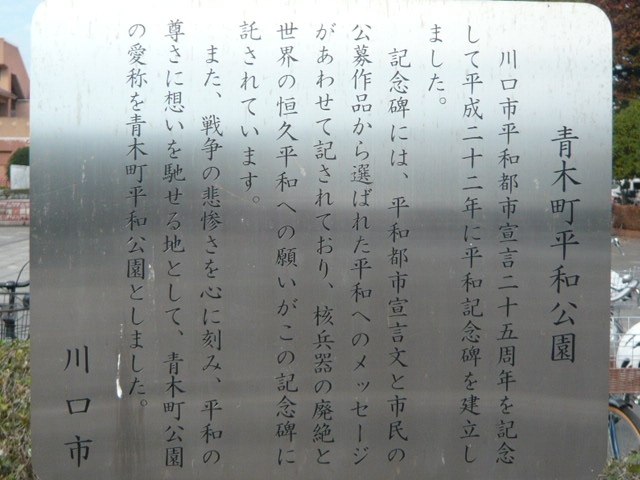 青木町平和公園
川口市平和都市宣言二十五周年を記念
して平成二十二年に平和記念碑を建立し
ました。
記念碑には、平和都市宣言文と市民の
公募作品から選ばれた平和へのメッセージ
があわせて記されており、核兵器の廃絶と
世界の恒久平和への願いがこの記念碑に
託されています。
また、戦争の悲惨さを心に刻み、平和の
尊さに想いを馳せる地として、青木町公園
の愛称を青木町平和公園としました。
川口市